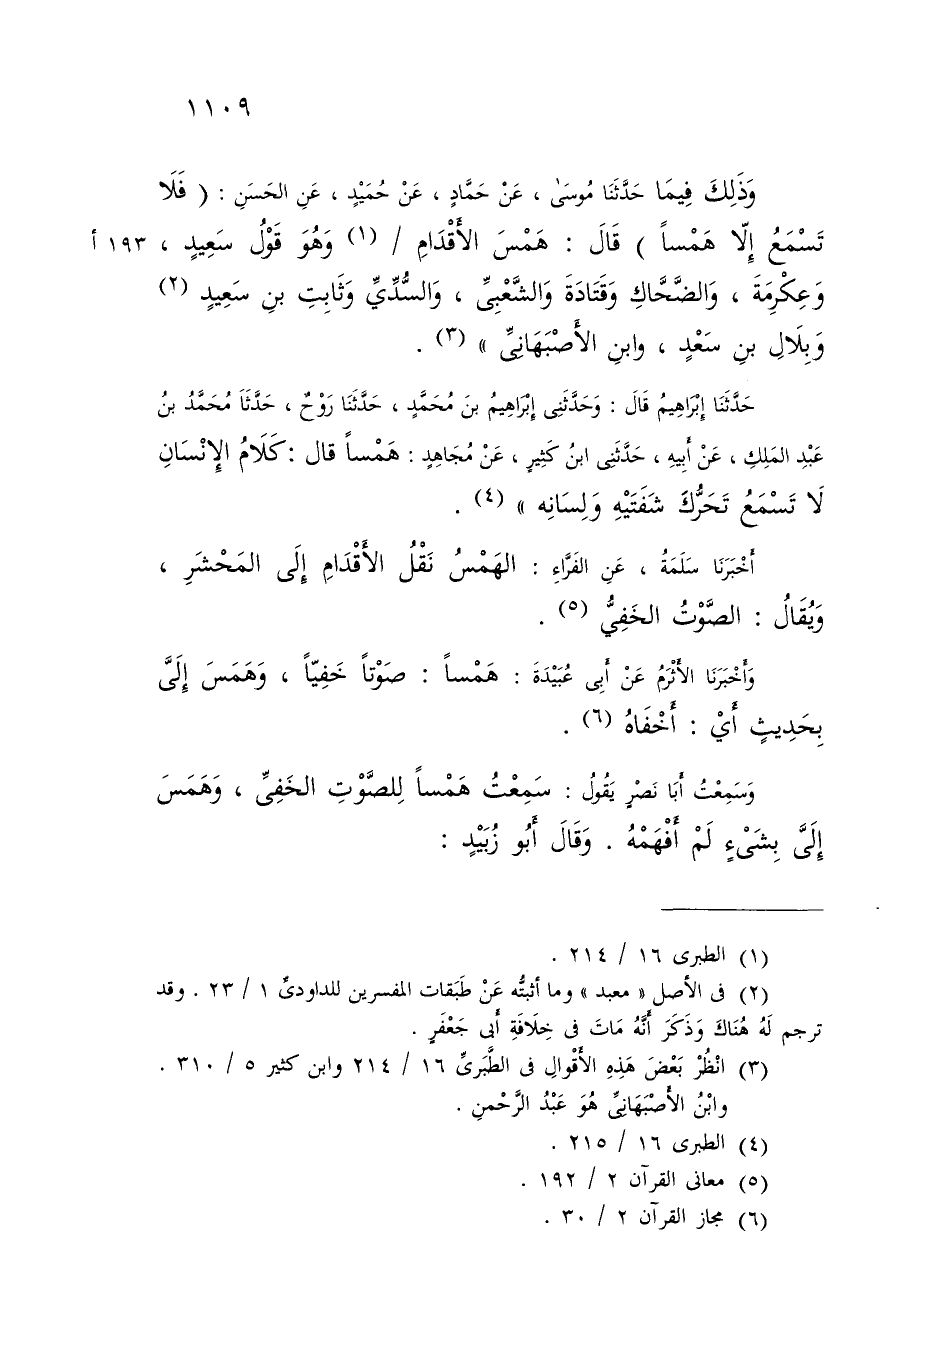 ١١٠٩
وَذَلِكَ فِيمَا حَدَّثَنَا مُوسَىٰ ، عَنْ حَمَّادٍ ، عَنْ حُمَيْدٍ ، عَنِ الحَسَنِ : ( فَلَا
تَسْمَعُ إِلّا هَمْساً ) قَالَ : هَمْسَ الأَقْدَامِ / (١) وَهُوَ قَوْلُ سَعِيدٍ ، ١٩٣ أ
وَعِكْرِمَةَ ، وَالضَّحَّاكِ وَقَتَادَةَ وَالشَّعْبِىِّ ، وَالسُّدِّىِّ وَثَابِتِ بنِ سَعِيدٍ (٢)
وَبِلَالِ بنِ سَعْدٍ ، وابنِ الأَصْبَهَانِىِّ » (٣) .
حَدَّثَنَا إِبْرَاهِيمُ قَالَ : وَحَدَّثَنِى إِبْرَاهِيمُ بنَ مُحَمَّدٍ ، حَدَّثَنَا رَوْحٌ ، حَدَّثَنَا مُحَمَّدُ بنُ
عَبْدِ المَلِكِ ، عَنْ أَبِيهِ ، حَدَّثَنِى ابنُ كَثِيرٍ ، عَنْ مُجَاهِدٍ : هَمْساً قال : كَلَامُ الإِنْسَانِ
لَا تَسْمَعُ تَحَرُّكَ شَفَتَيْهِ وَلِسَانِه » (٤) .
أَخْبَرَنَا سَلَمَةُ ، عَنِ الفَرَّاءِ : الهَمْسُ نَقْلُ الأَقْدَامِ إِلَى المَحْشَرِ ،
وَيُقَالُ : الصَّوْتُ الخَفِىُّ (٥) .
وَأَخْبَرَنَا الأَثْرَمُ عَنْ أَبِى عُبَيْدَةَ : هَمْساً : صَوْتاً خَفِيّاً ، وَهَمَسَ إِلَىَّ
بِحَدِيثٍ أَىْ : أَخْفَاهُ (٦) .
وَسَمِعْتُ أَبَا نَصْرٍ يَقُولُ : سَمِعْتُ هَمْساً لِلصَّوْتِ الخَفِىِّ ، وَهَمَسَ
إِلَىَّ بِشَىْءٍ لَمْ أَفْهَمْهُ . وَقَالَ أَبُو زُبَيْدٍ :
(١) الطبرى ١٦ / ٢١٤ .
(٢) فى الأصل « معبد » وما أثبتُّه عَنْ طَبَقات المفسرين للداودىِّ ١ / ٢٣ . وقد
ترجم لَهُ هُنَاكَ وَذَكَرَ أَنَّهُ مَاتَ فى خِلَافَةِ أَبى جَعْفَرٍ .
(٣) انْظُرْ بَعْضَ هَذِهِ الأَقْوالِ فى الطَّبَرىِّ ١٦ / ٢١٤ وابن كثير ٥ / ٣١٠ .
وابْنُ الأَصْبَهَانِىِّ هُوَ عَبْدُ الرَّحْمنِ .
(٤) الطبرى ١٦ / ٢١٥ .
(٥) معانى القرآن ٢ / ١٩٢ .
(٦) مجاز القرآن ٢ / ٣٠ .